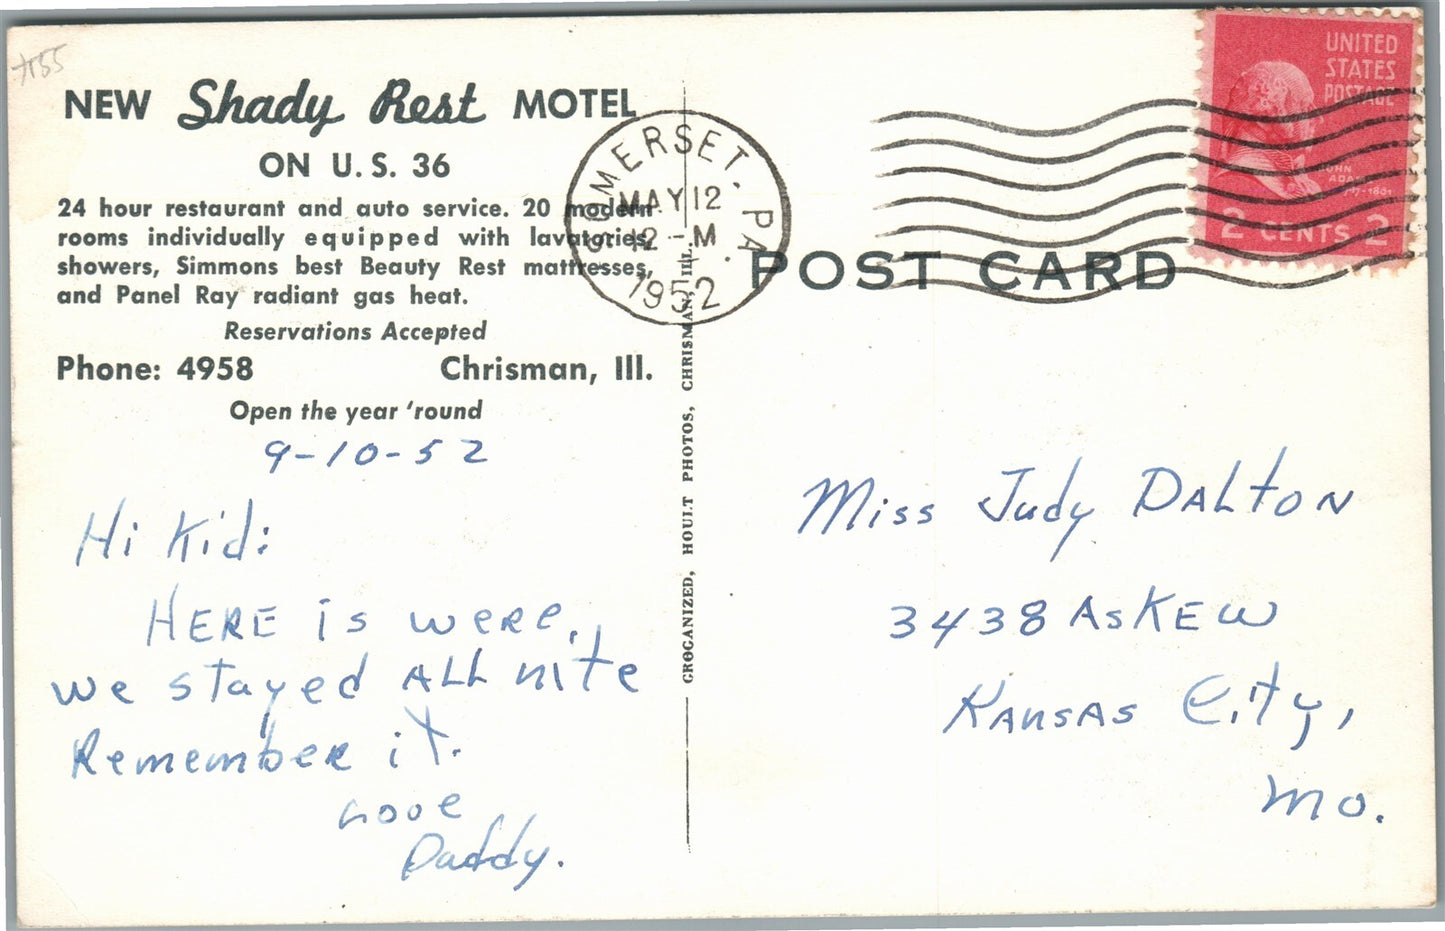 π55
NEW Shady Rest MOTEL
ON U. S. 36
24 hour restaurant and auto service. 20 modern
rooms individually equipped with lavatories,
showers, Simmons best Beauty Rest mattresses,
and Panel Ray radiant gas heat.
Reservations Accepted
Phone: 4958 Chrisman, Ill.
Open the year 'round
9-10-52
Hi Kid:
HERE is were,
we stayed ALL nite
Remember it.
Love
Daddy.
GROGANIZED, HOULT PHOTOS, CHRISMAN, ILL.
SOMERSET, PA.
MAY 12
12 - M
1952
POST CARD
UNITED
STATES
POSTAGE
JOHN
ADAMS
2 CENTS 2
Miss Judy DALTON
3438 ASKEW
KANSAS City,
Mo.